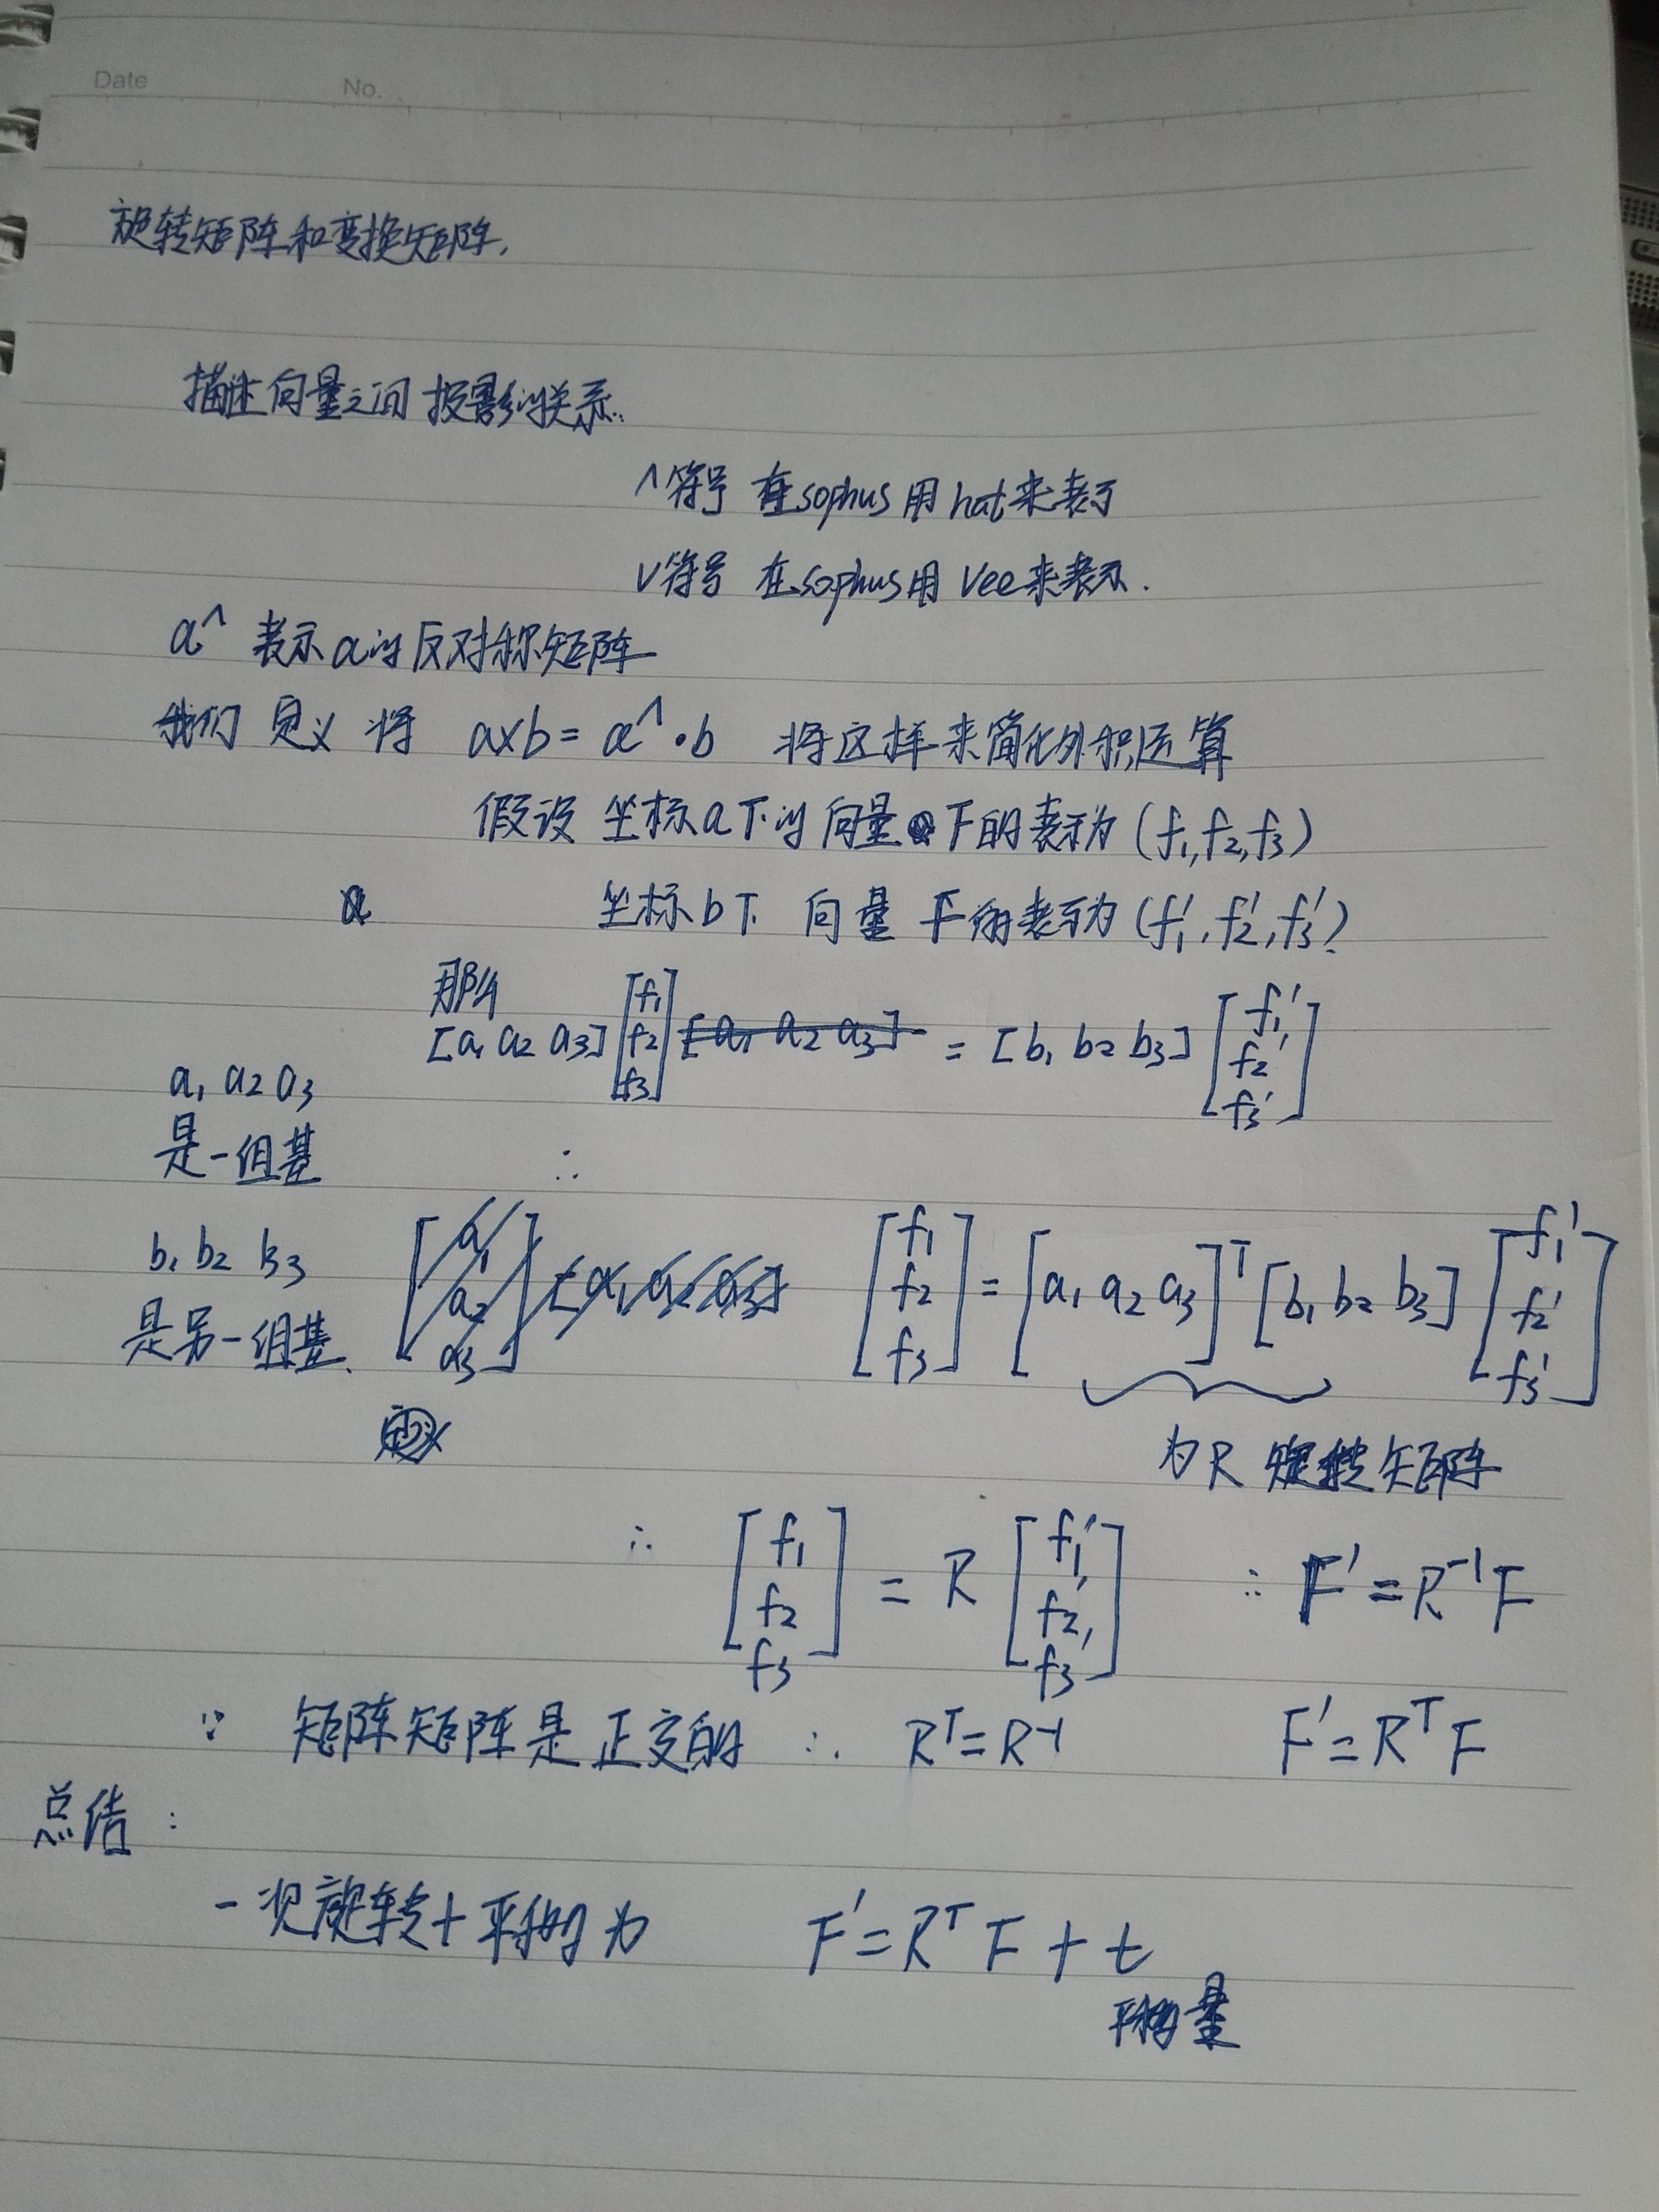 Date No.
旋转矩阵和变换矩阵.
描述向量之间投影的关系.
^符号 在sophus用hat来表示
v符号 在sophus用Vee来表示.
a^ 表示a的反对称矩阵
我们 定义 将 a×b = a^·b 将这样来简化外积运算
假设 坐标a下的向量 F的表示为 (f₁,f₂,f₃)
坐标b下 向量 F的表示为 (f₁′, f₂′, f₃′)
那么
[a₁ a₂ a₃] [f₁ f₂ f₃] = [b₁ b₂ b₃] [f₁′ f₂′ f₃′]
a₁ a₂ a₃
是一组基
∴
b₁ b₂ b₃
是另一组基.
[f₁ f₂ f₃] = [a₁ a₂ a₃]ᵀ [b₁ b₂ b₃] [f₁′ f₂′ f₃′]
为R 旋转矩阵
∴ [f₁ f₂ f₃] = R [f₁′ f₂′ f₃′] ∴ F′ = R⁻¹F
∵ 矩阵矩阵是正交的 ∴ Rᵀ=R⁻¹ F′=RᵀF
总结:
一次旋转+平移为 F′=RᵀF + t
平移量